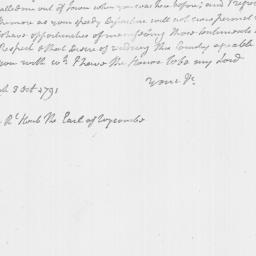 called me out of Town when you was here before; and I
as your speedy will not now permit
have opportunities of manifesting those sentiments
Respect & that desire of rendering this Country agreable
you with wh. I have the Honor to be my Lord
Your &c
3 Oct 1791
Rt. Honble The Earl of Wycombe